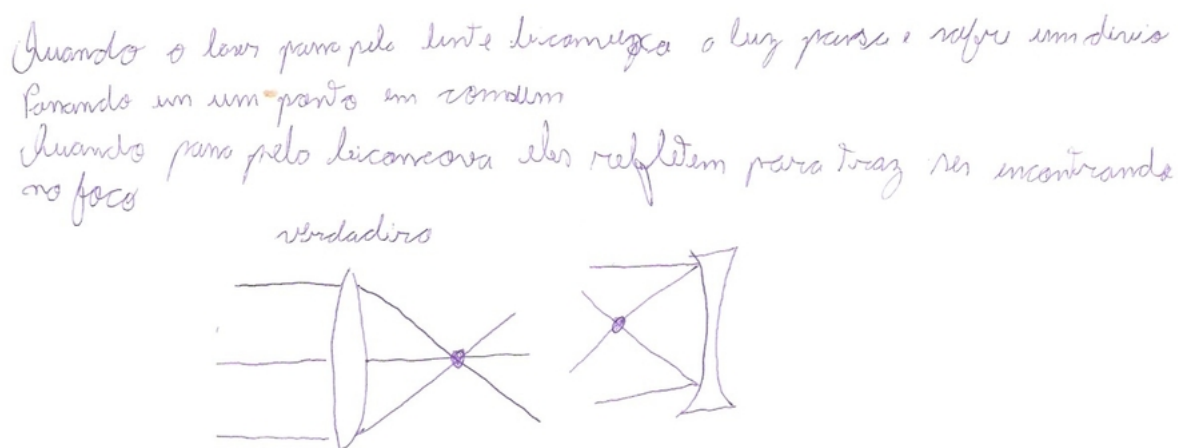 Quando o laser passa pela lente biconvexa a luz passa e sofre um disvio
Parando em um ponto em comum
Quando passa pelo biconcova eles refletem para traz ses encontrando
no foco
verdadiro